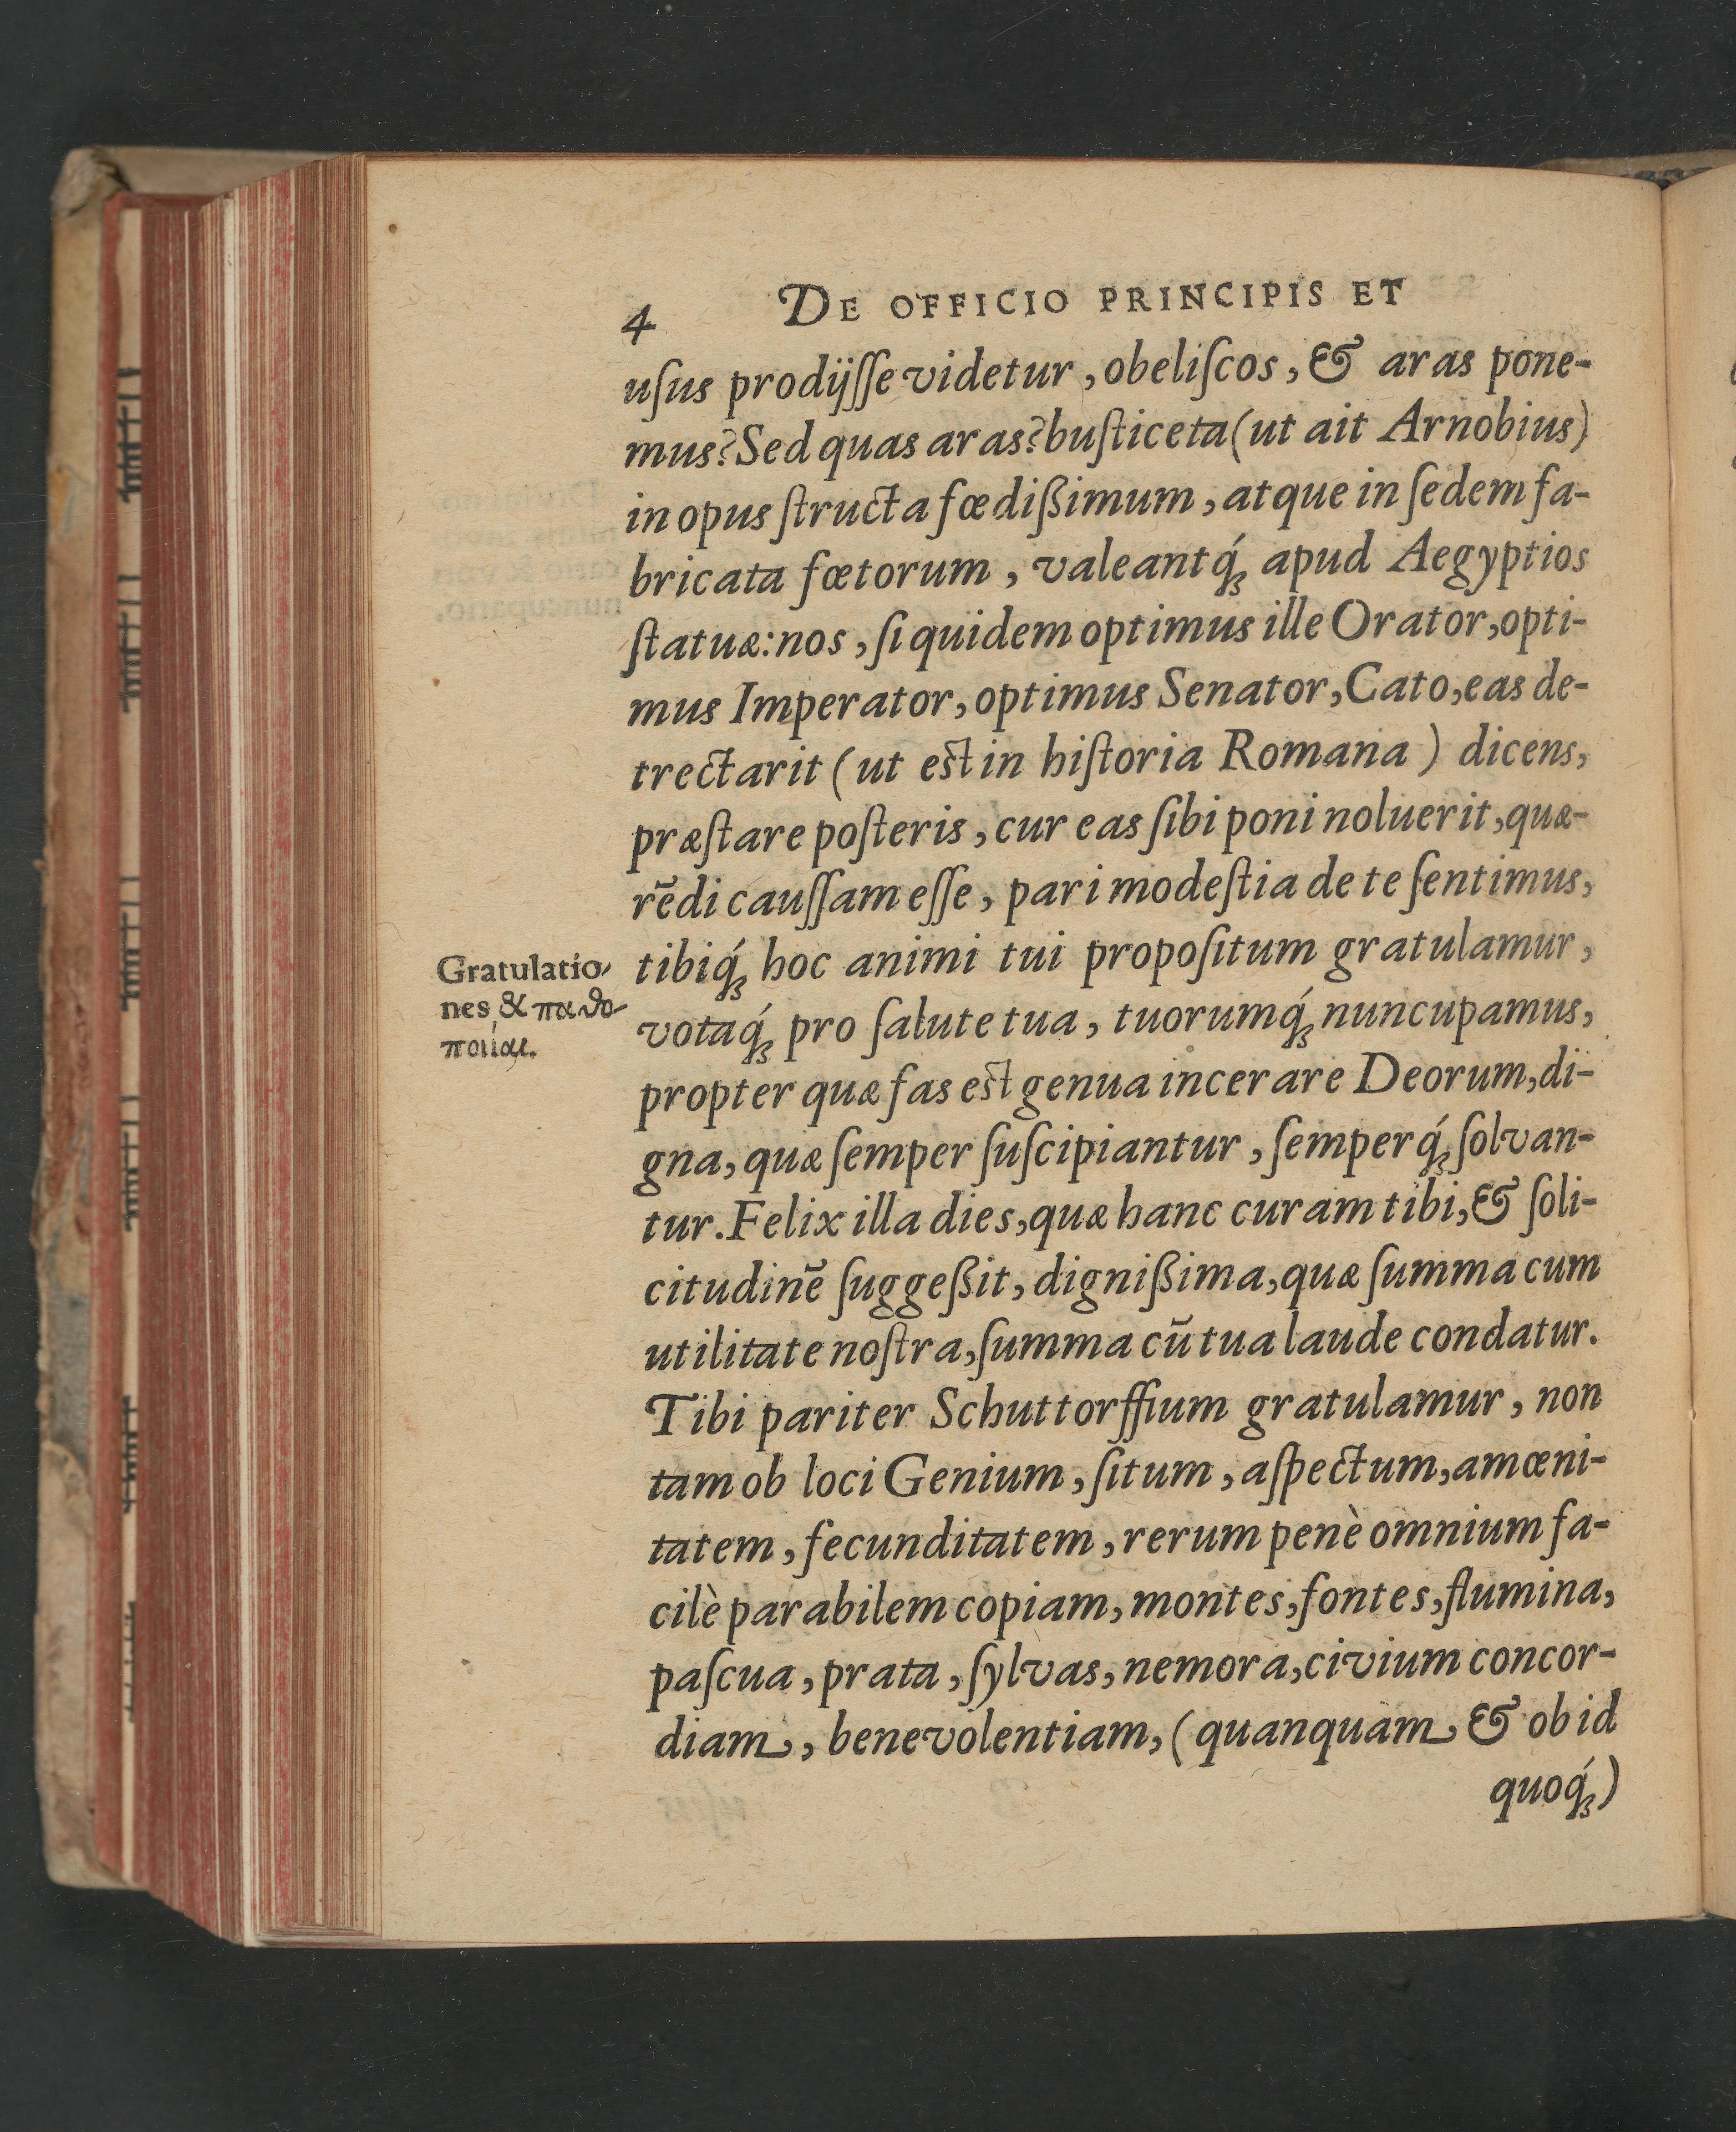 4 DE OFFICIO PRINCIPIS ET
uſus prodijſſe videtur, obeliſcos, & aras pone-
mus? Sed quas aras? buſticeta (ut ait Arnobius)
in opus ſtructa fœdißimum, atque in ſedem fa-
bricata fœtorum, valeantq́ꝫ apud Aegyptios
ſtatuæ: nos, ſi quidem optimus ille Orator, opti-
mus Imperator, optimus Senator, Cato, eas de-
trectarit (ut est in hiſtoria Romana) dicens,
præſtare poſteris, cur eas ſibi poni noluerit, quæ-
rēdi cauſſam eſſe, pari modeſtia de te ſentimus,
tibiq́ꝫ hoc animi tui propoſitum gratulamur,
Gratulatio-
nes & παθο-
ποιίαι.
votaq́ꝫ pro ſalute tua, tuorumq́ꝫ nuncupamus,
propter quæ fas est genua incerare Deorum, di-
gna, quæ ſemper ſuſcipiantur, ſemperq́ꝫ ſolvan-
tur. Felix illa dies, quæ hanc curam tibi, & ſoli-
citudinē ſuggeßit, dignißima, quæ ſumma cum
utilitate noſtra, ſumma cū tua laude condatur.
Tibi pariter Schuttorffium gratulamur, non
tam ob loci Genium, ſitum, aſpectum, amœni-
tatem, fecunditatem, rerum penè omnium fa-
cilè parabilem copiam, montes, fontes, flumina,
paſcua, prata, ſylvas, nemora, civium concor-
diam, benevolentiam, (quanquam & ob id
quoq́ꝫ)